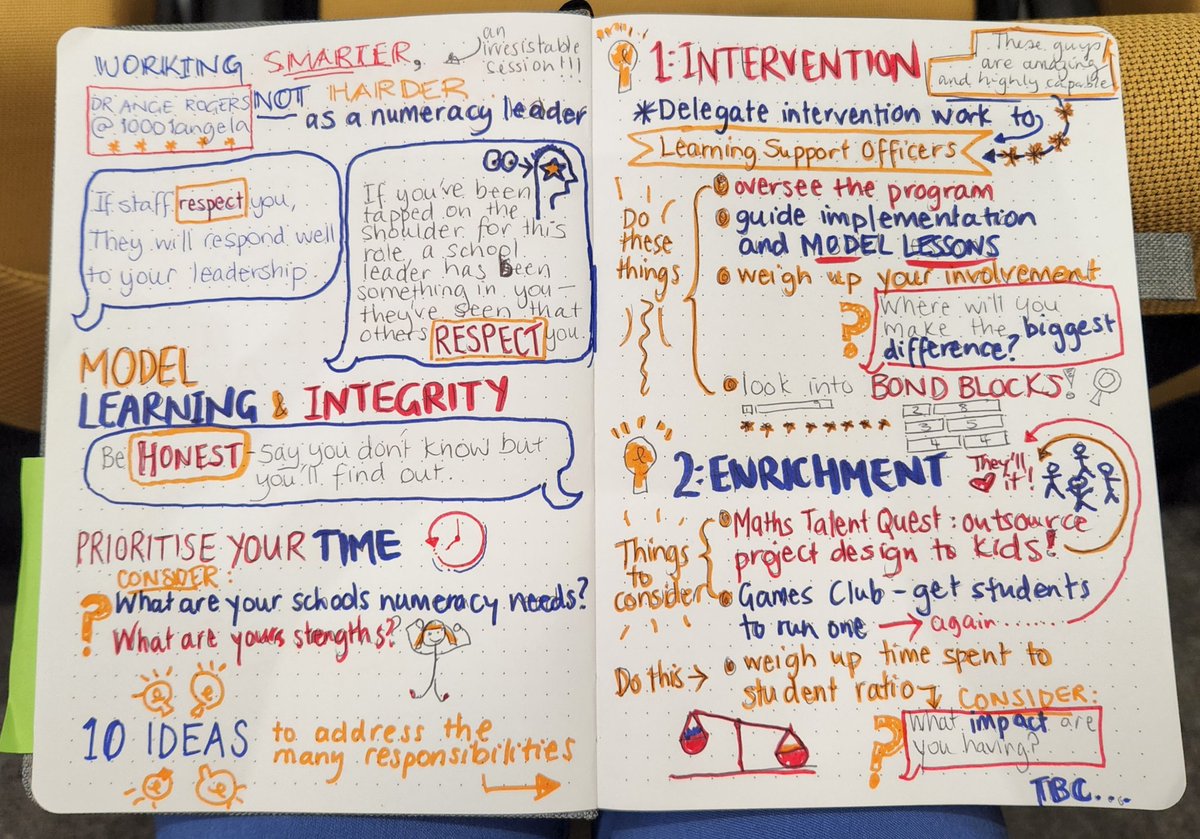 WORKING SMARTER,
NOT HARDER
as a numeracy leader
an
irresistable
session!!!
DR ANGE ROGERS
@10001angela
If staff respect you,
They will respond well
to your leadership.
If you've been
tapped on the
shoulder for this
role, a school
leader has been
something in you-
they've seen that
others RESPECT you.
MODEL
LEARNING & INTEGRITY
Be HONEST - say you don't know but
you'll find out..
PRIORITISE YOUR TIME
CONSIDER:
? What are your schools numeracy needs?
What are yours strengths?
10 IDEAS to address the
many responsibilities
1: INTERVENTION
These guys
are amazing
and highly capable
*Delegate intervention work to
Learning Support Officers
Do
these
things
oversee the program
guide implementation
and MODEL LESSONS
weigh up your involvement
? Where will you
make the biggest
difference?
look into BOND BLOCKS!
9
2 8
3 5
4 4
2: ENRICHMENT
They'll
❤ it!
Things
to
consider
Maths Talent Quest: outsource
project design to kids!
Games Club - get students
to run one → again......
Do this → weigh up time spent to
student ratio
CONSIDER:
? What impact are
you having?
TBC....